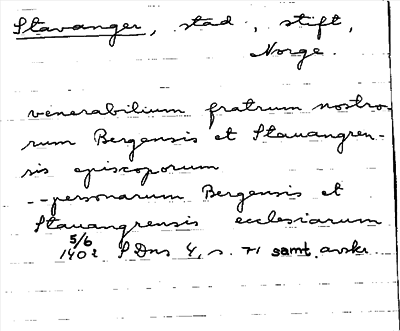 Stavanger, stad, stift,
Norge.
venerabilium fratrum nostro-
rum Bergensis et Stauangren-
sis episcoporum
-- personarum Bergensis et
Stauangrensis ecclesiarum
5/6
1402 SDns 4, s. 71 samt avskr.